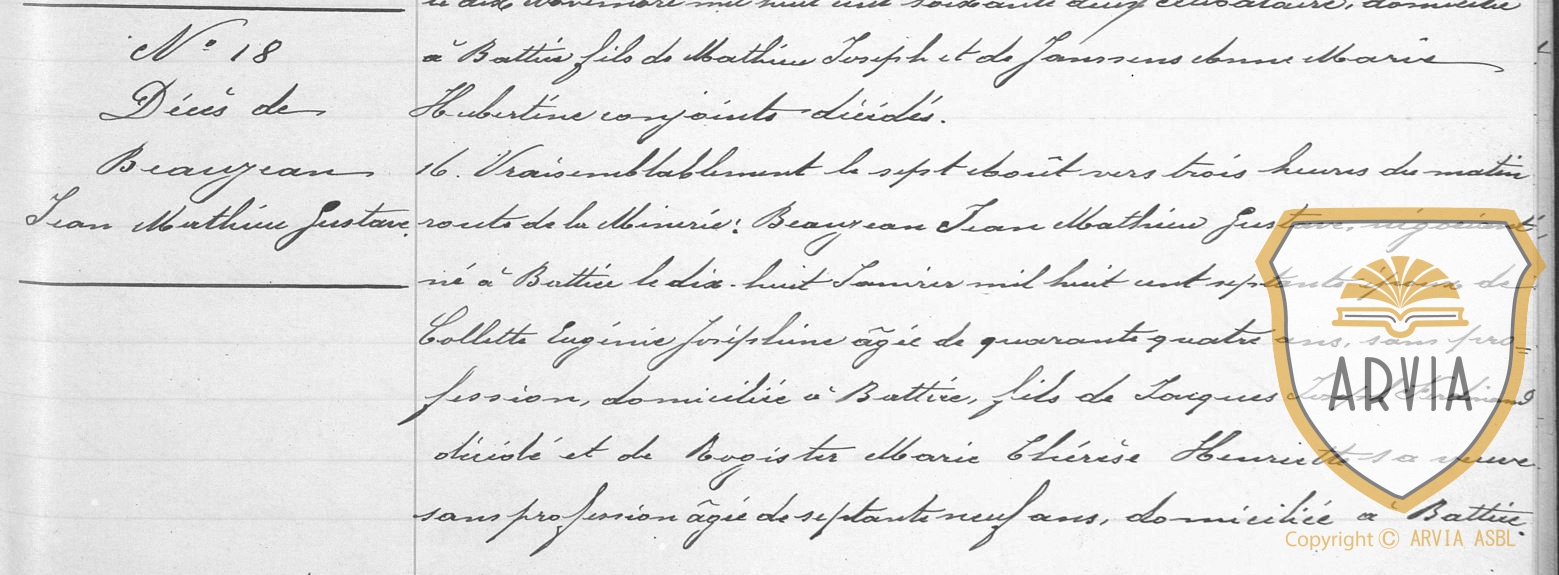 le dix Novembre mil huit cent soixante deux, célibataire, domicilié
à Battice fils de Mathieu Joseph et de Janssens Anne Marie
Hubertine conjoints décédés.
N° 18
Décès de
Beaujean
Jean Mathieu Gustave.
16. Vraisemblablement le sept Août vers trois heures du matin
route de la Minerie: Beaujean Jean Mathieu Gustave, négociant,
né à Battice le dix-huit Janvier mil huit cent septante époux de
Collette Eugénie Joséphine âgée de quarante quatre ans, sans pro=
fession, domiciliée à Battice, fils de Jacques Joseph Ferdinand
décédé et de Rogister Marie Thérèse Henriette sa veuve
sans profession âgée de septante neuf ans, domiciliée à Battice.
ARVIA
Copyright © ARVIA ASBL